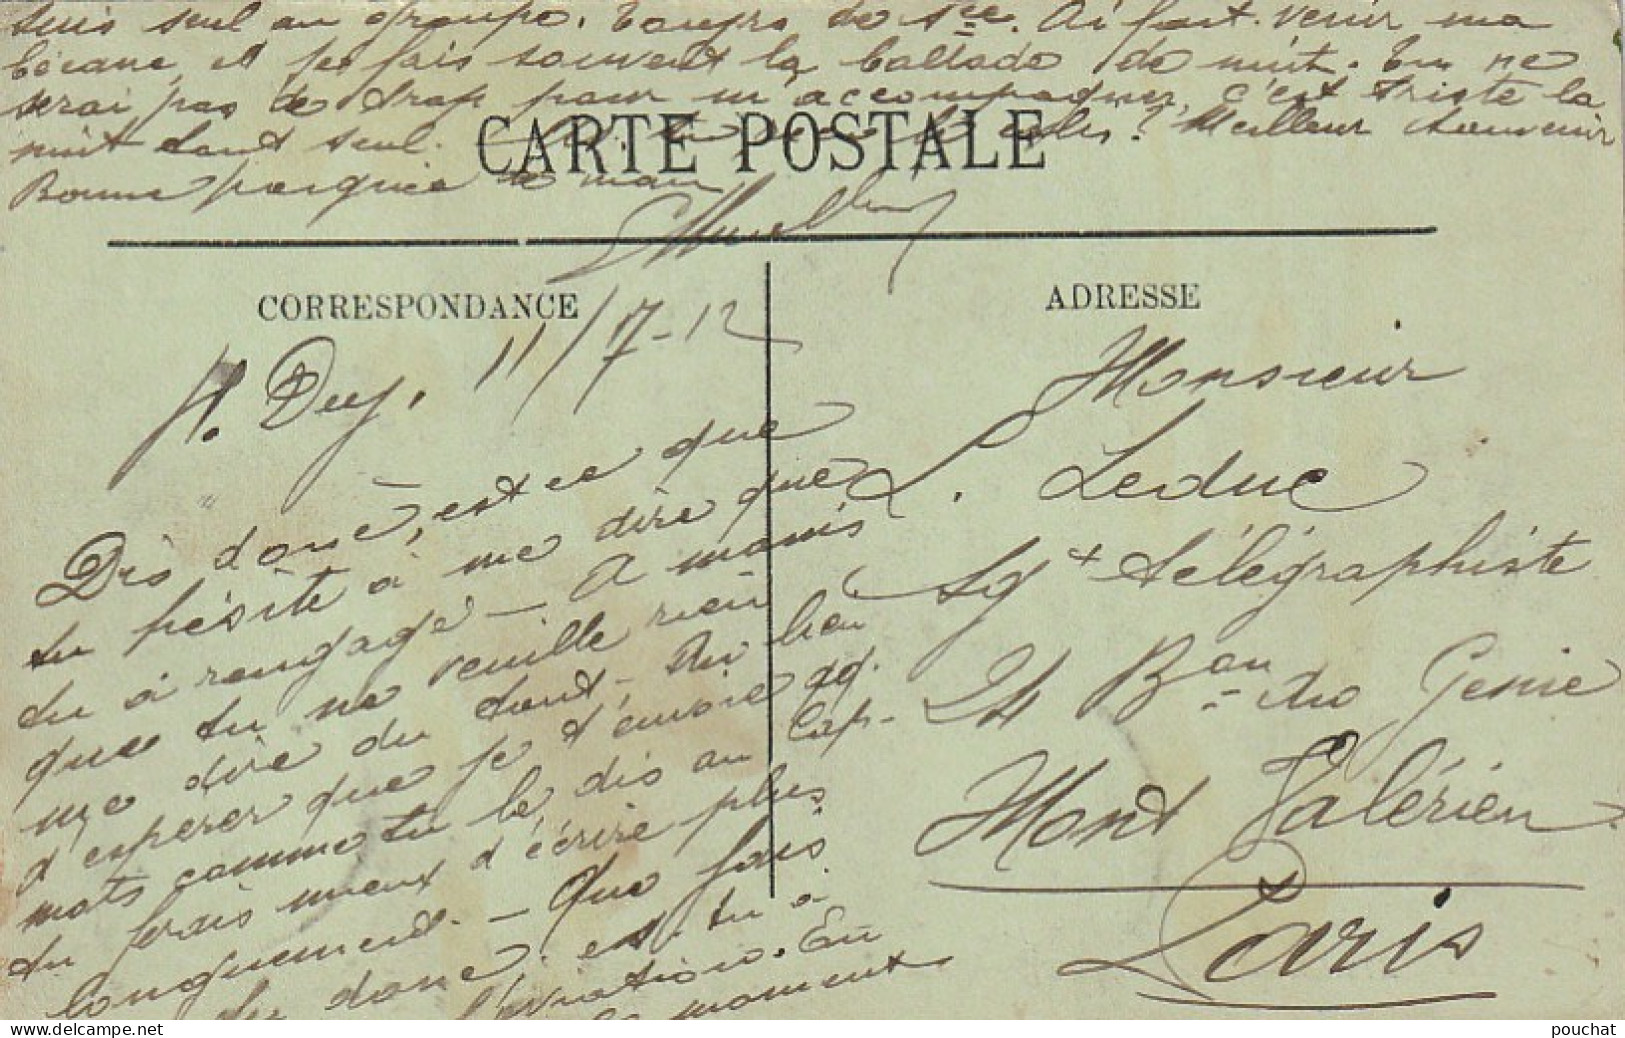 suis seul au groupe. Toujrs de sce. Ai fait venir ma
bécane, et je fais souvent la ballade de nuit. Tu ne
serai pas de trop pour m'accompagner, c'est triste la
nuit tout seul. Meilleur souvenir
Bonne poignée de main
CARTE POSTALE
CORRESPONDANCE
11/7-12
Dis donc, est ce que
tu hésite à me dire que
tu à rengagé - A moins
que tu ne veuille rien
me dire du tout - Au lieu
d'esperer que je t'envoie qq.
mots comme tu le dis au Cap-
tu ferais mieux d'écrire plus
longuement. - Que fais
tu donc. es-tu à
l'aviation. En
ce moment
ADRESSE
Monsieur
L. Leduc
Sgt télégraphiste
24 Bon du Genie
Mont Valérien
Paris
pouchat